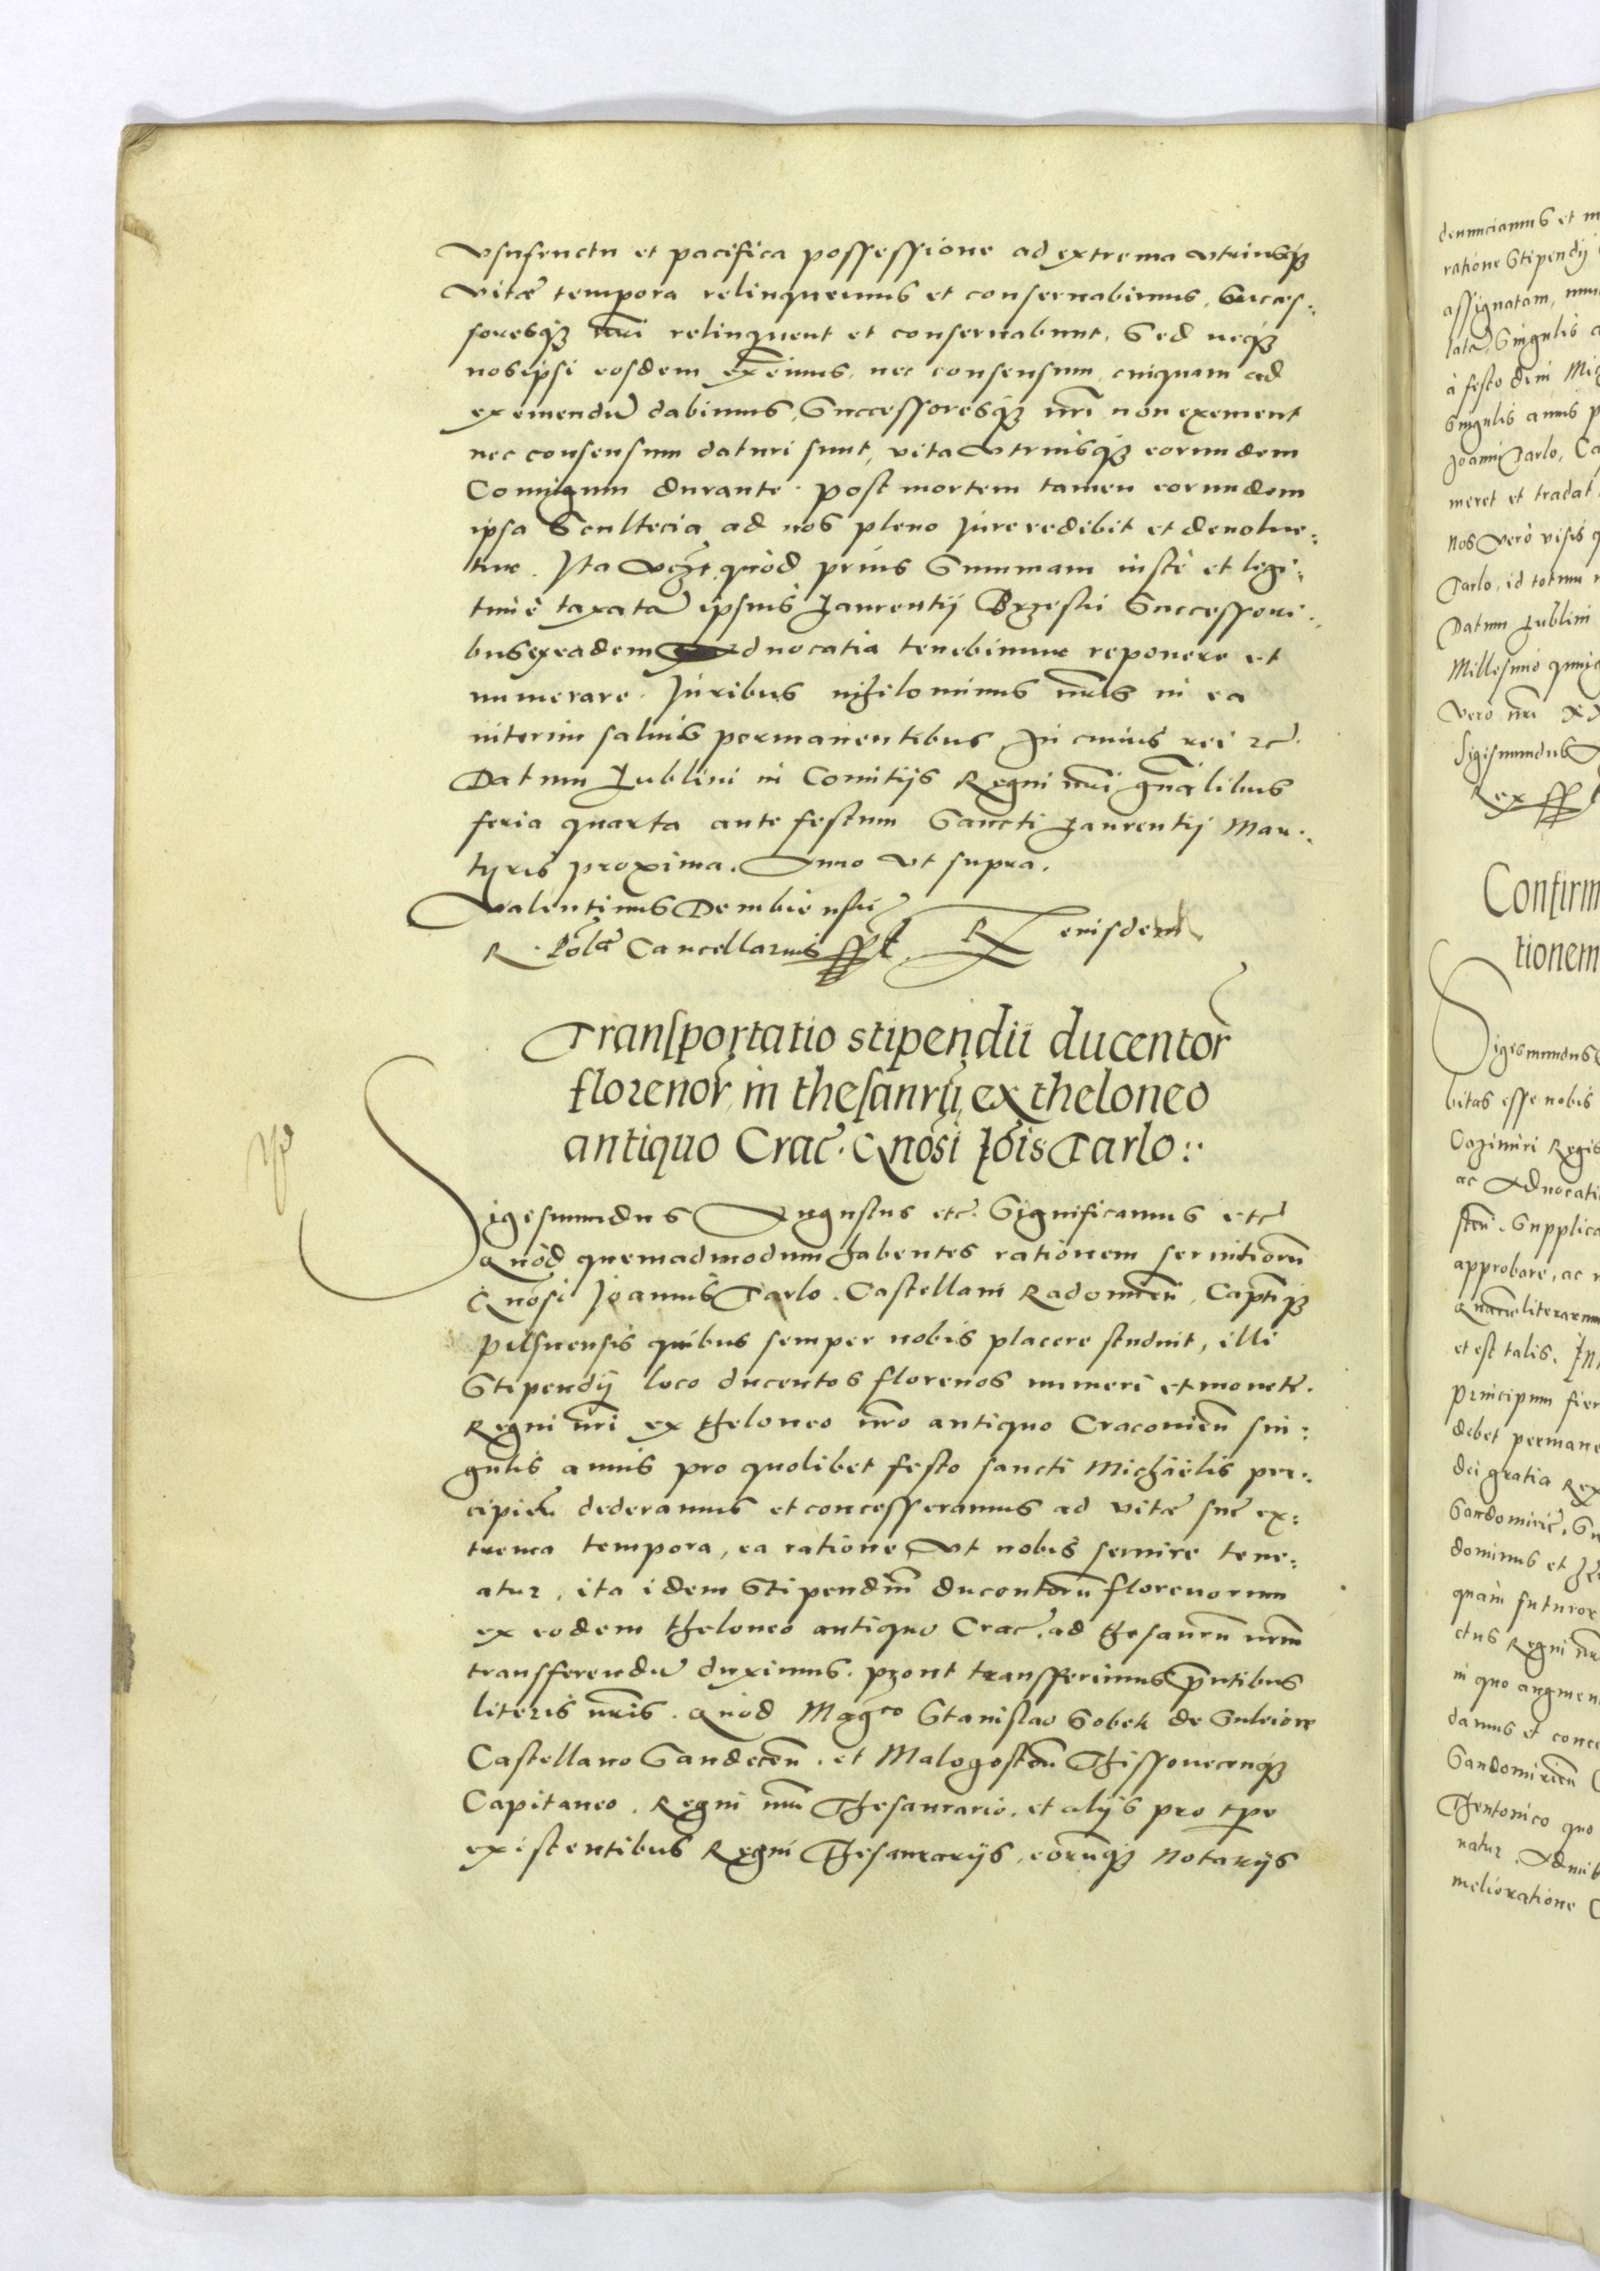 Vsufructu et pacifica possessione ad extrema vtriusq3
vitae tempora relinquemus et conseruabimus, Succes-
soresq3 nri relinquent et conseruabunt, Sed neq3
nosipsi eosdem eximemus, nec consensum cuiquam ad
eximendu dabimus, Successoresq3 nri non exement
nec consensum daturi sunt, vita vtriusq3 eorundem
Coniugum durante. Post mortem tamen eorundem
ipsa Scultecia ad nos pleno Iure redibit et deuolue-
tur. Ita vczt quod prius Summam iuste et legi-
time taxata ipsius Laurentij Brzeski Successori-
bus ex eadem aduocatia tenebimur reponere et
numerare. Iuribus nihilominus nris in ea
interim saluis permanentibus. In cuius rei etc.
Datum Lublini in Comitijs Regni nri gnalibus
feria quarta ante festum Sancti Laurentij Mar-
tyris proxima. Anno vt supra.
Valentinus Dembienski
R. Polae Cancellarius sspt. Rx eiusdem
Transportatio stipendii ducentor
florenor in thesauru, ex theloneo
antiquo Crac. Gnosi Iois Tarlo:
Sigesmundus Augustus etc. Significamus etc
Quod quemadmodum habentes rationem seruitioru
Gnosi Joannis Tarlo. Castellani Radomien, Captiq3
Pilsnensis quibus semper nobis placere studuit, illi
Stipendij loco ducentos florenos numeri et monete.
Regni nri ex theloneo nro antiquo Cracouien sin-
gulis annis pro quolibet festo sancti Michaelis per-
cipien dederamus et concesseramus ad vitae sue ex-
trema tempora, ea ratione vt nobis seruire tene-
atur, ita idem Stipendm ducentoru florenorum
ex eodem theloneo antiquo Crac. ad thesauru nrm
transferendu duximus. prout transferimus pntibus
literis nris. Quod Magco Stanislao Sobek de Suleiow
Castellano Sandecen. et Malogosten Thissouecenq3
Capitaneo. Regni nri Thesaurario. et alijs pro tpe
existentibus Regni Thesaurarijs, eoruq3 Notarijs
denunciamus et
ratione Stipendij
assignatam,
Singulis
à festo diui
Singulis annis
Joanni Tarlo,
meret et tradat
Nos vero visis
Tarlo, id totum
Datum Lublini
Millesimo
vero nri
Sigismundus
Rex sspt
Confirm
tionem
Sigesmundus
bitas esse nobis
Cazimiri Regis
ac Aduocati
Supplica
approbare, ac
literarum
et est talis. In
Principum
debet permane
dei gratia Rex
Sandomirie.
dominus et
quam futuror
ctus Regni
in quo augmen
damus et conce
Sandomirien
Thentonico quo
natur.
melioratione